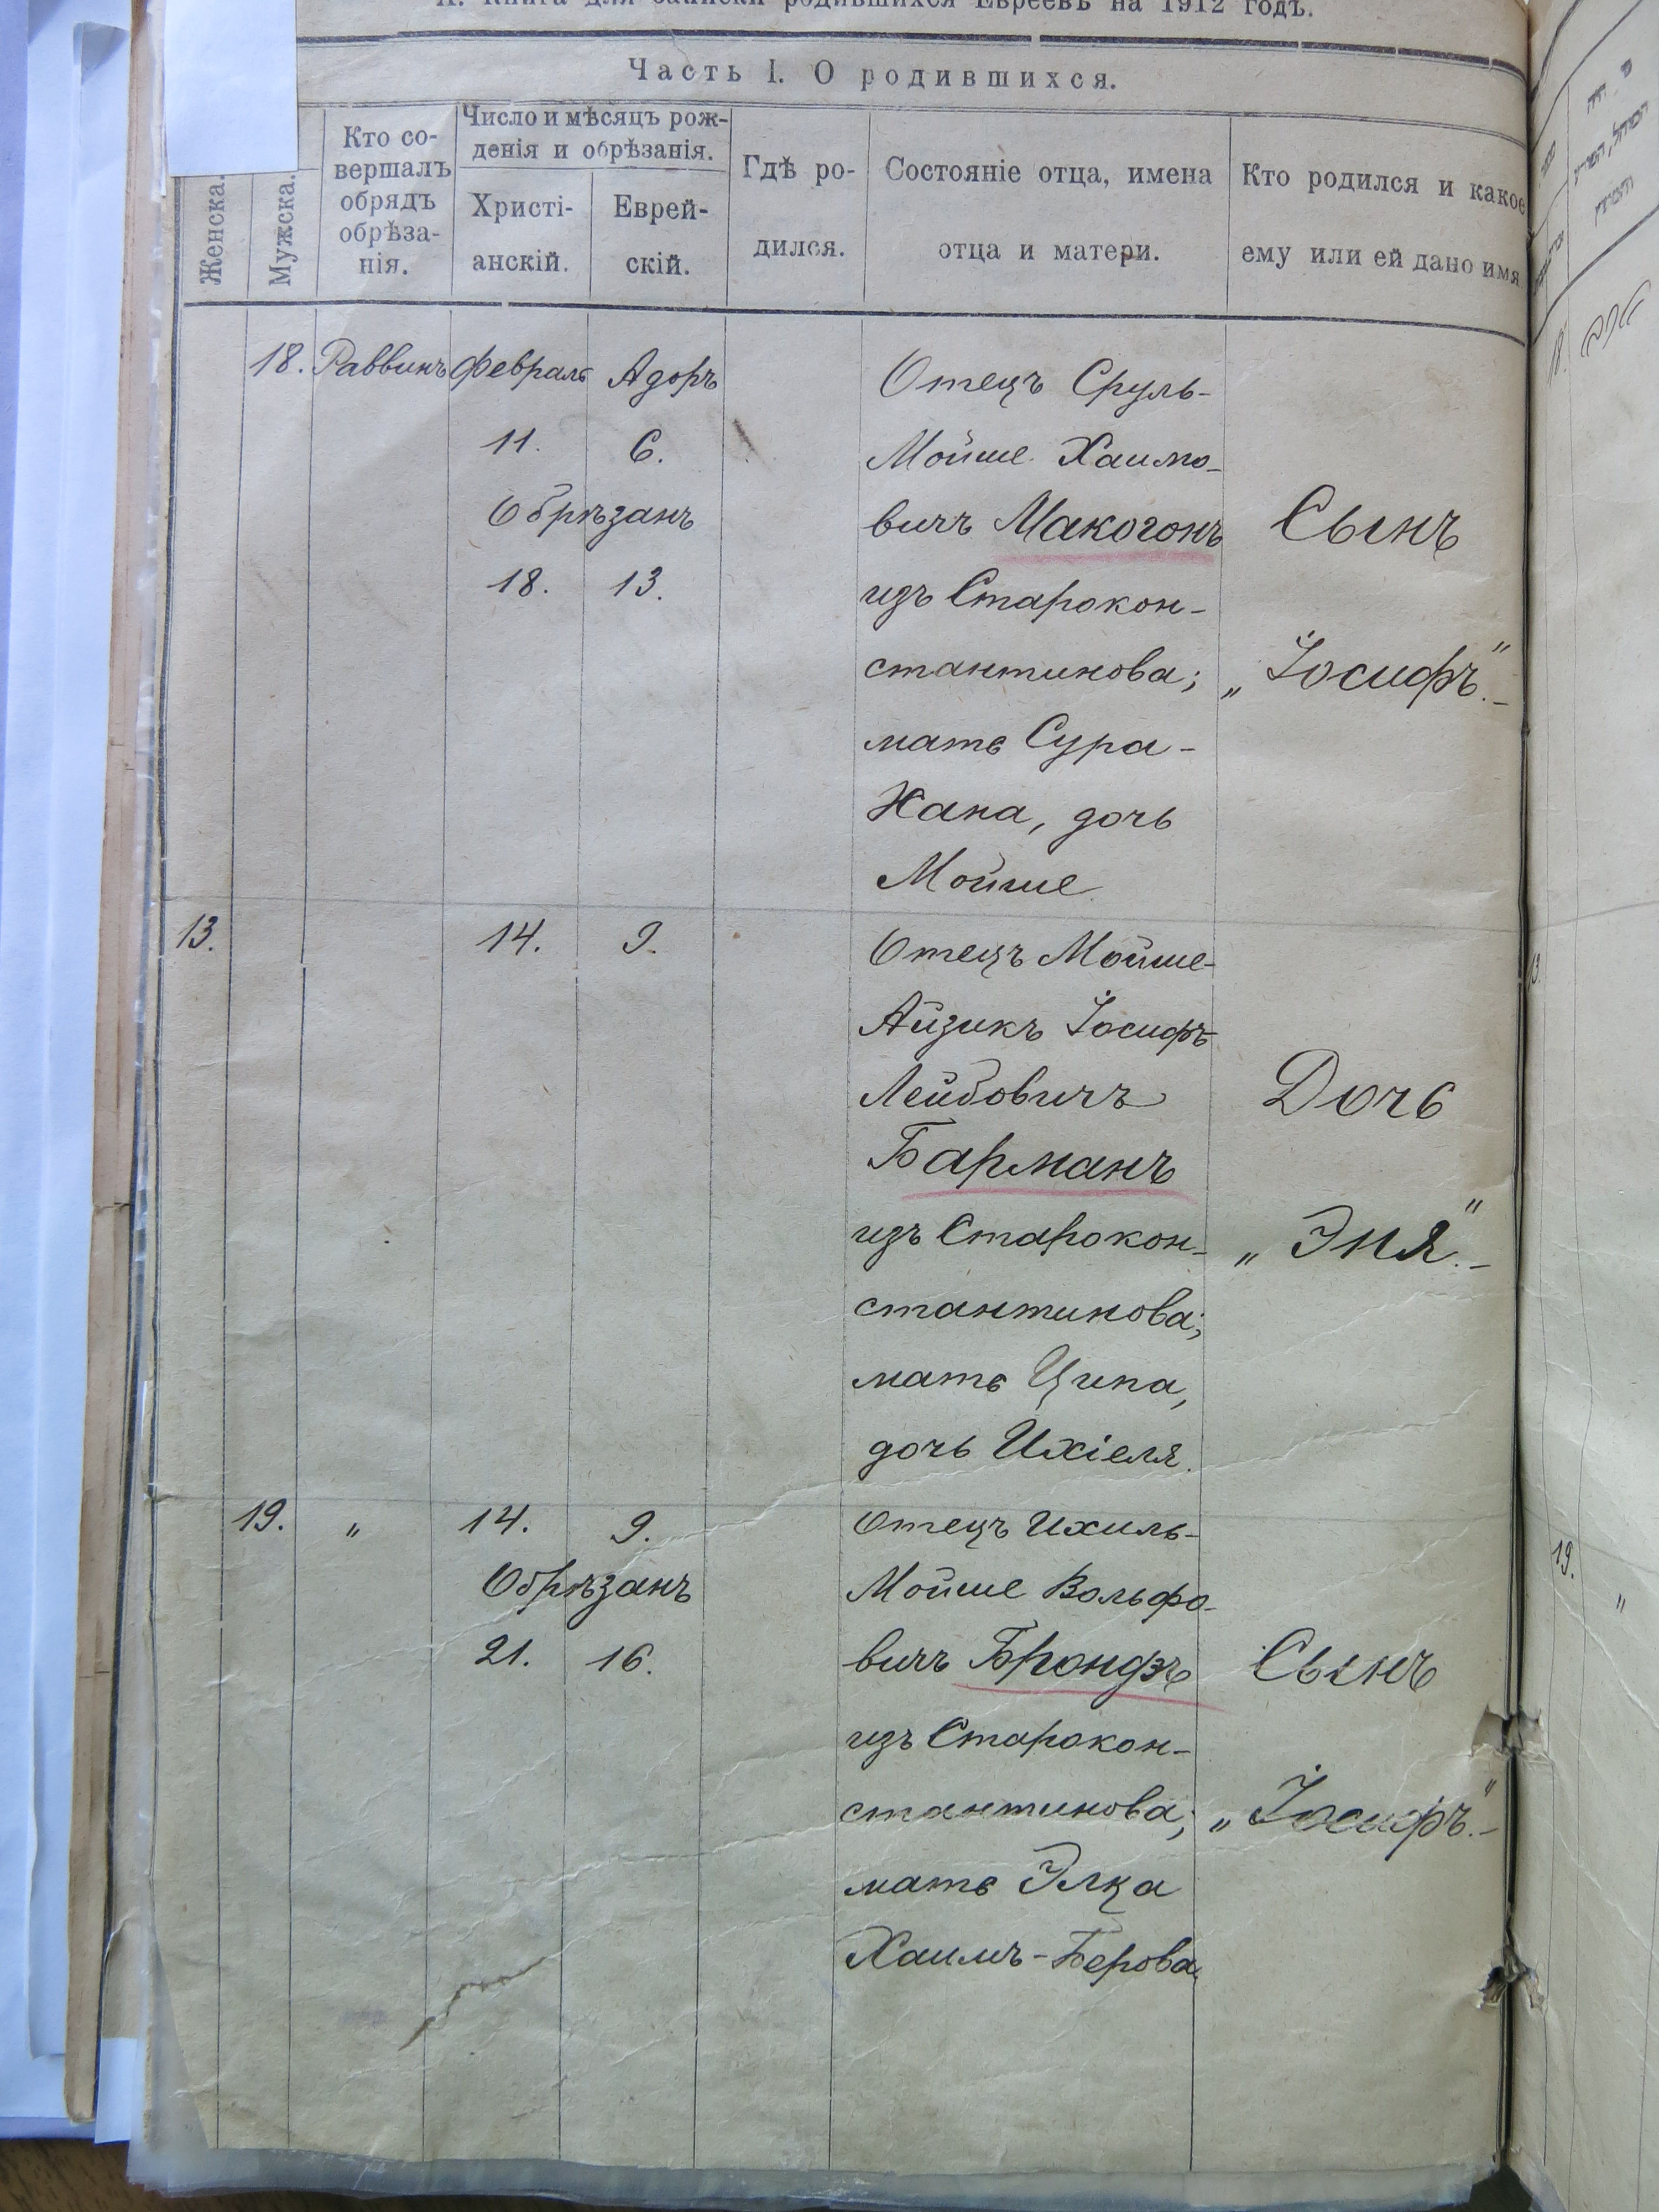 Книга для записки родившихся Евреевъ на 1912 годъ.
Часть I. О родившихся.
Женска.
Мужска.
Кто со-
вершалъ
обрядъ
обрѣза-
нія.
Число и мѣсяцъ рож-
денія и обрѣзанія.
Христі-
анскій.
Еврей-
скій.
Гдѣ ро-
дился.
Состояніе отца, имена
отца и матери.
Кто родился и какое
ему или ей дано имя
18. Раввинъ Февраль Адоръ
11. 6.
Обрѣзанъ
18. 13.
Отецъ Сруль-
Мойше Хаимо-
вичъ Макогонъ
изъ Старокон-
стантинова;
мать Сура-
Хана, дочь
Мойше
Сынъ
„Іосифъ".-
13. 14. 9.
Отецъ Мойше-
Айзикъ Іосифъ
Лейбовичъ
Барманъ
изъ Старокон-
стантинова;
мать Ципа,
дочь Ихіеля.
Дочь
„Эня".-
19. " 14. 9.
Обрѣзанъ
21. 16.
Отецъ Ихиль-
Мойше Вольфо-
вичъ Брондзъ
изъ Старокон-
стантинова;
мать Элка
Хаимъ-Берова.
Сынъ
„Іосифъ".-
18.
13.
19.
"